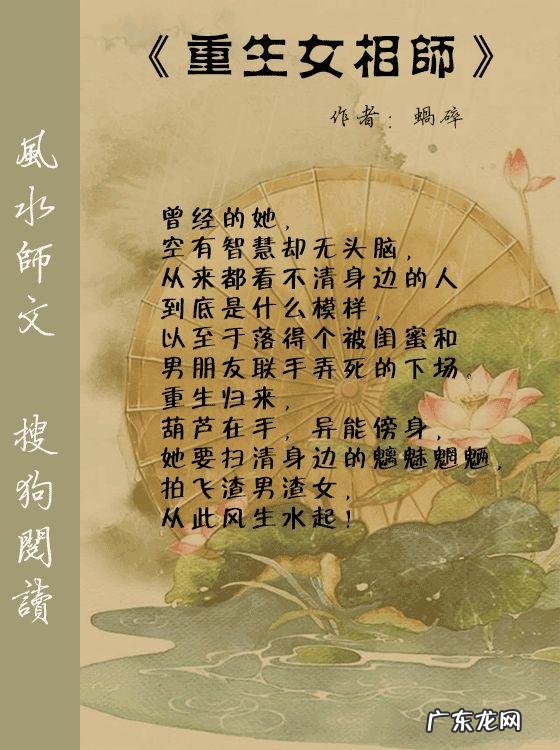 《重生女相師》
作者：蝸碎
曾经的她，
空有智慧却无头脑，
从来都看不清身边的人
到底是什么模样，
以至于落得个被闺蜜和
男朋友联手弄死的下场。
重生归来，
葫芦在手，异能傍身，
她要扫清身边的魑魅魍魉，
拍飞渣男渣女，
从此风生水起！
風水師文
搜狗閱讀
广东龙网